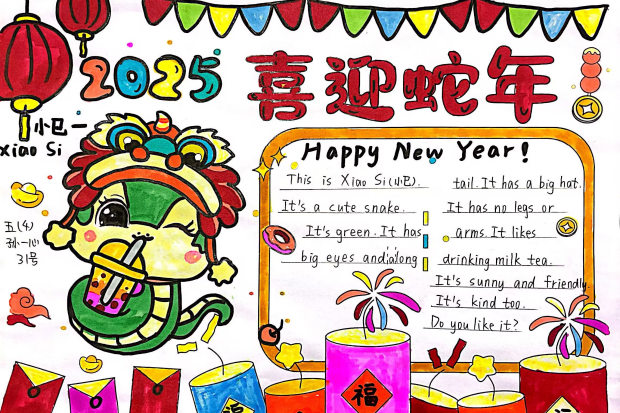 2025 喜迎蛇年
小巴一
xiao Si
五(4)
孙一心
31号
Happy New Year!
This is Xiao Si(小巴).
It's a cute snake.
It's green. It has
big eyes and a long
tail. It has a big hat.
It has no legs or
arms. It likes
drinking milk tea.
It's sunny and friendly.
It's kind too.
Do you like it?
福
福
福